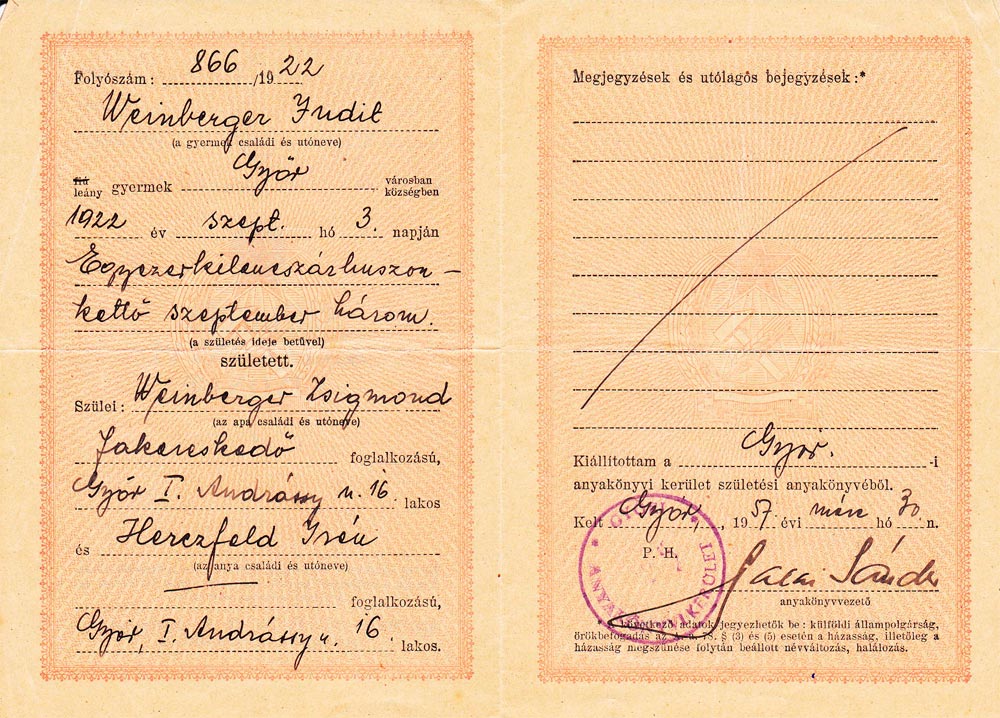 Folyószám: 866/1922
Weinberger Judit
(a gyermek családi és utóneve)
fiú
leány gyermek Győr városban
községben
1922 év szept. hó 3. napján
Egyezerkilencszázhuszon-
kettő szeptember három.
(a születés ideje betűvel)
született.
Szülei: Weinberger Zsigmond
(az apa családi és utóneve)
fakereskedő foglalkozású,
Győr I. Andrássy u. 16. lakos
és Herczfeld Irén
(az anya családi és utóneve)
— foglalkozású,
Győr, I. Andrássy u. 16. lakos.
Megjegyzések és utólagos bejegyzések:*
Kiállítottam a Győr. -i
anyakönyvi kerület születési anyakönyvéből.
Kelt Győr, 1957. évi márc hó 30 n.
P. H.
Sándor
anyakönyvvezető
következő adatok jegyezhetők be: külföldi állampolgárság,
örökbefogadás az A. u. 75. § (3) és (5) esetén a házasság, illetőleg a
házasság megszünése folytán beállott névváltozás, halálozás.